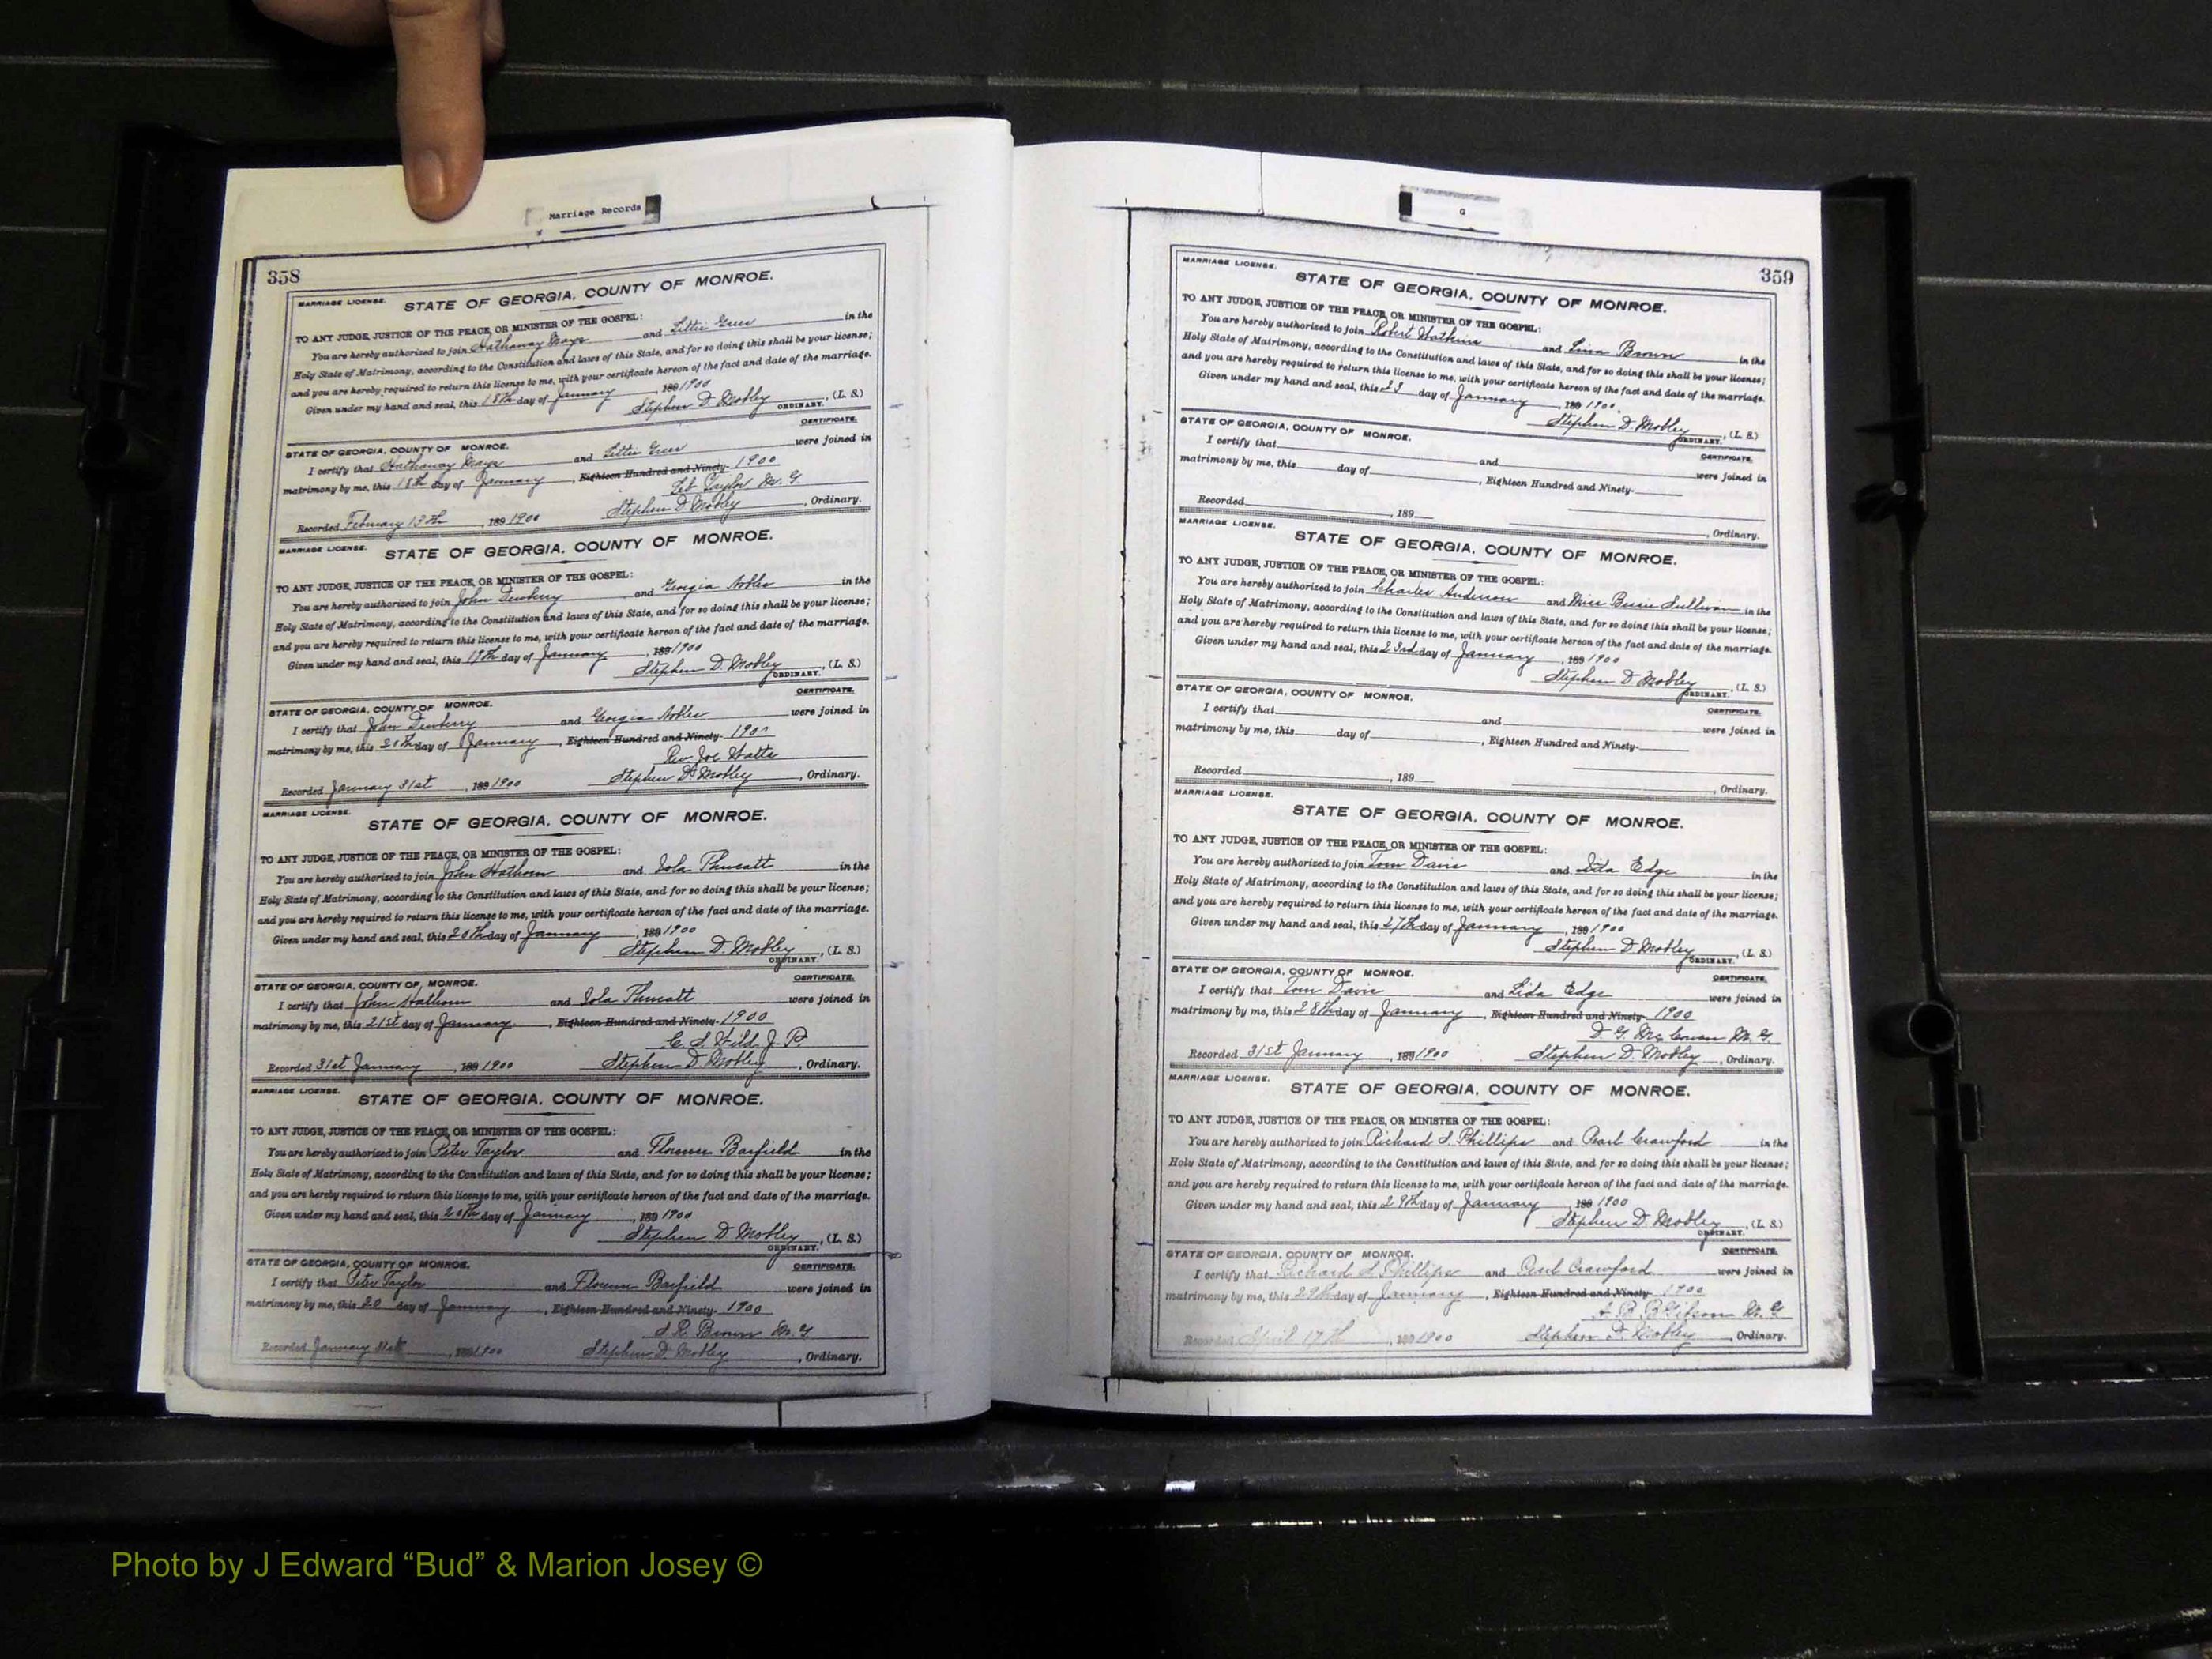 Marriage Records
358
MARRIAGE LICENSE.
STATE OF GEORGIA, COUNTY OF MONROE.
TO ANY JUDGE, JUSTICE OF THE PEACE, OR MINISTER OF THE GOSPEL:
You are hereby authorized to join Hathaway Mays and Littie Greer in the
Holy State of Matrimony, according to the Constitution and laws of this State, and for so doing this shall be your license;
and you are hereby required to return this license to me, with your certificate hereon of the fact and date of the marriage.
Given under my hand and seal, this 18th day of January, 189 1900
Stephen D. Mobley, (L. S.)
ORDINARY.
CERTIFICATE.
STATE OF GEORGIA, COUNTY OF MONROE.
I certify that Hathaway Mays and Littie Greer were joined in
matrimony by me, this 18th day of January, Eighteen Hundred and Ninety- 1900
Taylor M. G.
Recorded February 13th, 189 1900 Stephen D. Mobley, Ordinary.
MARRIAGE LICENSE.
STATE OF GEORGIA, COUNTY OF MONROE.
TO ANY JUDGE, JUSTICE OF THE PEACE, OR MINISTER OF THE GOSPEL:
You are hereby authorized to join John Dewberry and Georgia Nobles in the
Holy State of Matrimony, according to the Constitution and laws of this State, and for so doing this shall be your license;
and you are hereby required to return this license to me, with your certificate hereon of the fact and date of the marriage.
Given under my hand and seal, this 19th day of January, 189 1900
Stephen D. Mobley, (L. S.)
ORDINARY.
CERTIFICATE.
STATE OF GEORGIA, COUNTY OF MONROE.
I certify that John Dewberry and Georgia Nobles were joined in
matrimony by me, this 20th day of January, Eighteen Hundred and Ninety- 1900
Rev. Joe Watts
Recorded January 31st, 189 1900 Stephen D. Mobley, Ordinary.
MARRIAGE LICENSE.
STATE OF GEORGIA, COUNTY OF MONROE.
TO ANY JUDGE, JUSTICE OF THE PEACE, OR MINISTER OF THE GOSPEL:
You are hereby authorized to join John Hathorn and Iola Thweatt in the
Holy State of Matrimony, according to the Constitution and laws of this State, and for so doing this shall be your license;
and you are hereby required to return this license to me, with your certificate hereon of the fact and date of the marriage.
Given under my hand and seal, this 20th day of January, 189 1900
Stephen D. Mobley, (L. S.)
ORDINARY.
CERTIFICATE.
STATE OF GEORGIA, COUNTY OF MONROE.
I certify that John Hathorn and Iola Thweatt were joined in
matrimony by me, this 21st day of January, Eighteen Hundred and Ninety- 1900
C. S. J. P.
Recorded 31st January, 189 1900 Stephen D. Mobley, Ordinary.
MARRIAGE LICENSE.
STATE OF GEORGIA, COUNTY OF MONROE.
TO ANY JUDGE, JUSTICE OF THE PEACE, OR MINISTER OF THE GOSPEL:
You are hereby authorized to join Peter Taylor and Florence Barfield in the
Holy State of Matrimony, according to the Constitution and laws of this State, and for so doing this shall be your license;
and you are hereby required to return this license to me, with your certificate hereon of the fact and date of the marriage.
Given under my hand and seal, this 20th day of January, 189 1900
Stephen D. Mobley, (L. S.)
ORDINARY.
CERTIFICATE.
STATE OF GEORGIA, COUNTY OF MONROE.
I certify that Peter Taylor and Florence Barfield were joined in
matrimony by me, this 20 day of January, Eighteen Hundred and Ninety- 1900
S. R. Brown M. G
Recorded January 31st, 189 1900 Stephen D. Mobley, Ordinary.
G
359
MARRIAGE LICENSE.
STATE OF GEORGIA, COUNTY OF MONROE.
TO ANY JUDGE, JUSTICE OF THE PEACE, OR MINISTER OF THE GOSPEL:
You are hereby authorized to join Robert Watkins and Lina Brown in the
Holy State of Matrimony, according to the Constitution and laws of this State, and for so doing this shall be your license;
and you are hereby required to return this license to me, with your certificate hereon of the fact and date of the marriage.
Given under my hand and seal, this 23 day of January, 189 1900.
Stephen D. Mobley, (L. S.)
ORDINARY.
CERTIFICATE.
STATE OF GEORGIA, COUNTY OF MONROE.
I certify that and were joined in
matrimony by me, this day of, Eighteen Hundred and Ninety-
Recorded, 189 , Ordinary.
MARRIAGE LICENSE.
STATE OF GEORGIA, COUNTY OF MONROE.
TO ANY JUDGE, JUSTICE OF THE PEACE, OR MINISTER OF THE GOSPEL:
You are hereby authorized to join Charles Anderson and Miss Bessie Sullivan in the
Holy State of Matrimony, according to the Constitution and laws of this State, and for so doing this shall be your license;
and you are hereby required to return this license to me, with your certificate hereon of the fact and date of the marriage.
Given under my hand and seal, this 23rd day of January, 189 1900
Stephen D Mobley, (L. S.)
ORDINARY.
CERTIFICATE.
STATE OF GEORGIA, COUNTY OF MONROE.
I certify that and were joined in
matrimony by me, this day of, Eighteen Hundred and Ninety-
Recorded, 189 , Ordinary.
MARRIAGE LICENSE.
STATE OF GEORGIA, COUNTY OF MONROE.
TO ANY JUDGE, JUSTICE OF THE PEACE, OR MINISTER OF THE GOSPEL:
You are hereby authorized to join Tom Davis and Lida Edge in the
Holy State of Matrimony, according to the Constitution and laws of this State, and for so doing this shall be your license;
and you are hereby required to return this license to me, with your certificate hereon of the fact and date of the marriage.
Given under my hand and seal, this 27th day of January, 189 1900
Stephen D. Mobley, (L. S.)
ORDINARY.
CERTIFICATE.
STATE OF GEORGIA, COUNTY OF MONROE.
I certify that Tom Davis and Lida Edge were joined in
matrimony by me, this 28th day of January, Eighteen Hundred and Ninety- 1900
D. G. McCowan M. G.
Recorded 31st January, 189 1900 Stephen D. Mobley, Ordinary.
MARRIAGE LICENSE.
STATE OF GEORGIA, COUNTY OF MONROE.
TO ANY JUDGE, JUSTICE OF THE PEACE, OR MINISTER OF THE GOSPEL:
You are hereby authorized to join Richard S. Phillips and Pearl Crawford in the
Holy State of Matrimony, according to the Constitution and laws of this State, and for so doing this shall be your license;
and you are hereby required to return this license to me, with your certificate hereon of the fact and date of the marriage.
Given under my hand and seal, this 29th day of January, 189 1900
Stephen D. Mobley, (L. S.)
ORDINARY.
CERTIFICATE.
STATE OF GEORGIA, COUNTY OF MONROE.
I certify that Richard S. Phillips and Pearl Crawford were joined in
matrimony by me, this 29th day of January, Eighteen Hundred and Ninety- 1900
M. G
Recorded April 17th, 189 1900 Stephen D. Mobley, Ordinary.
Photo by J Edward “Bud” & Marion Josey ©